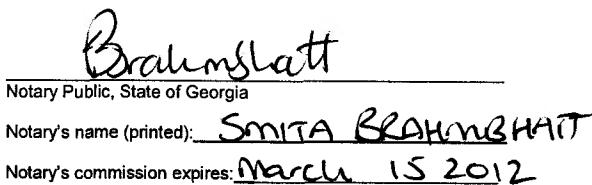 Brahmbhatt
Notary Public, State of Georgia
Notary's name (printed): SMITA BRAHMBHATT
Notary's commission expires: March 15 2012